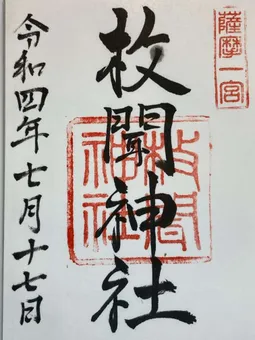 薩摩一宮
枚聞神社
枚聞神社
令和四年七月十七日